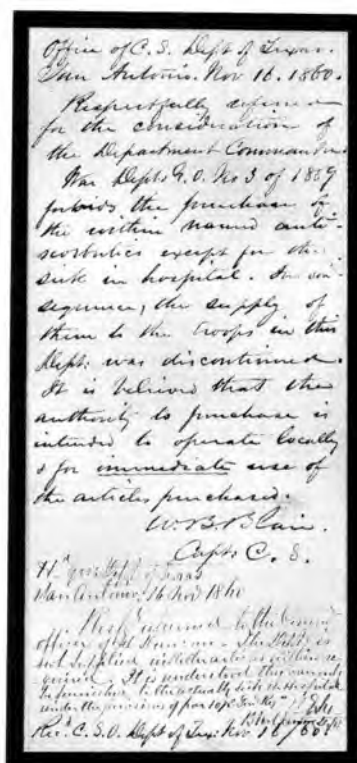 Office of C. S. Dept of Texas.
San Antonio. Nov 16. 1860.
Respectfully referred
for the consideration of
the Department Commander.
War Dept G. O. No 3 of 1859
forbids the purchase of
the within named anti-
scorbutics except for the
sick in hospital. In con-
sequence, the supply of
them to the troops in this
Dept: was discontinued.
It is believed that the
authority to purchase is
intended to operate locally
& for immediate use of
the articles purchased.
W. B. Blair.
Capt: C. S.
Hd Qrs Dept of Texas
San Antonio, 16 Nov 1860
returned to the
officer of
not supplied with articles within re-
quired. It is understood
to the actually sick in Hospital
under the provisions of par
Recd C. S. O. Dept of Tex: Nov 16/60